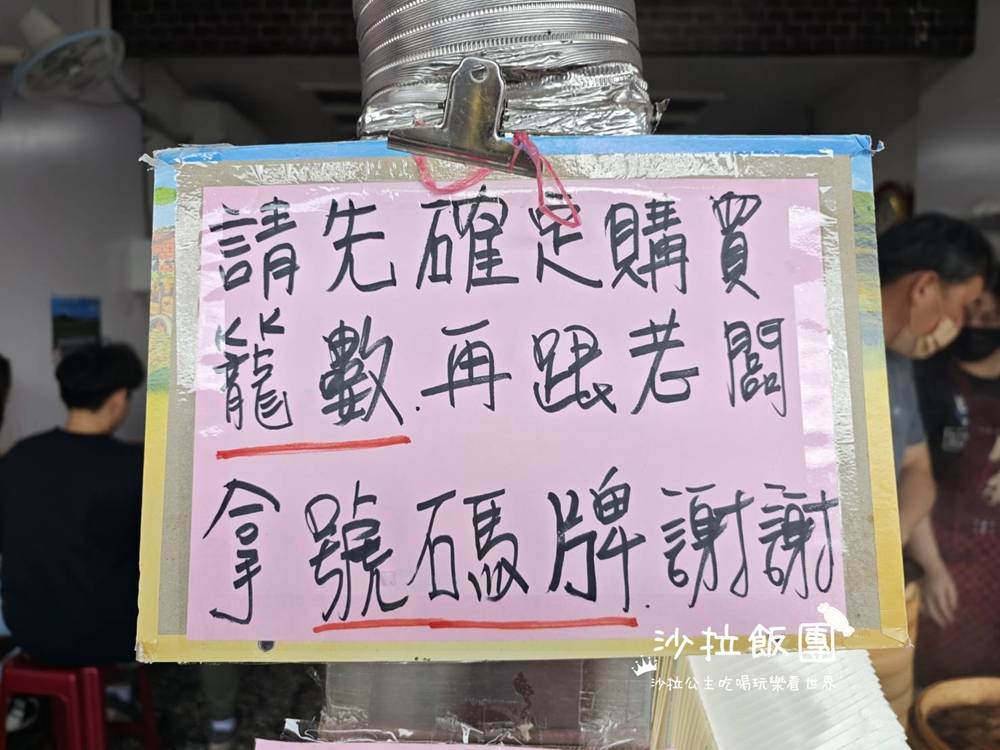 請先確定購買
籠數.再跟老闆
拿號碼牌.謝謝
沙拉飯團
沙拉公主吃喝玩樂看世界